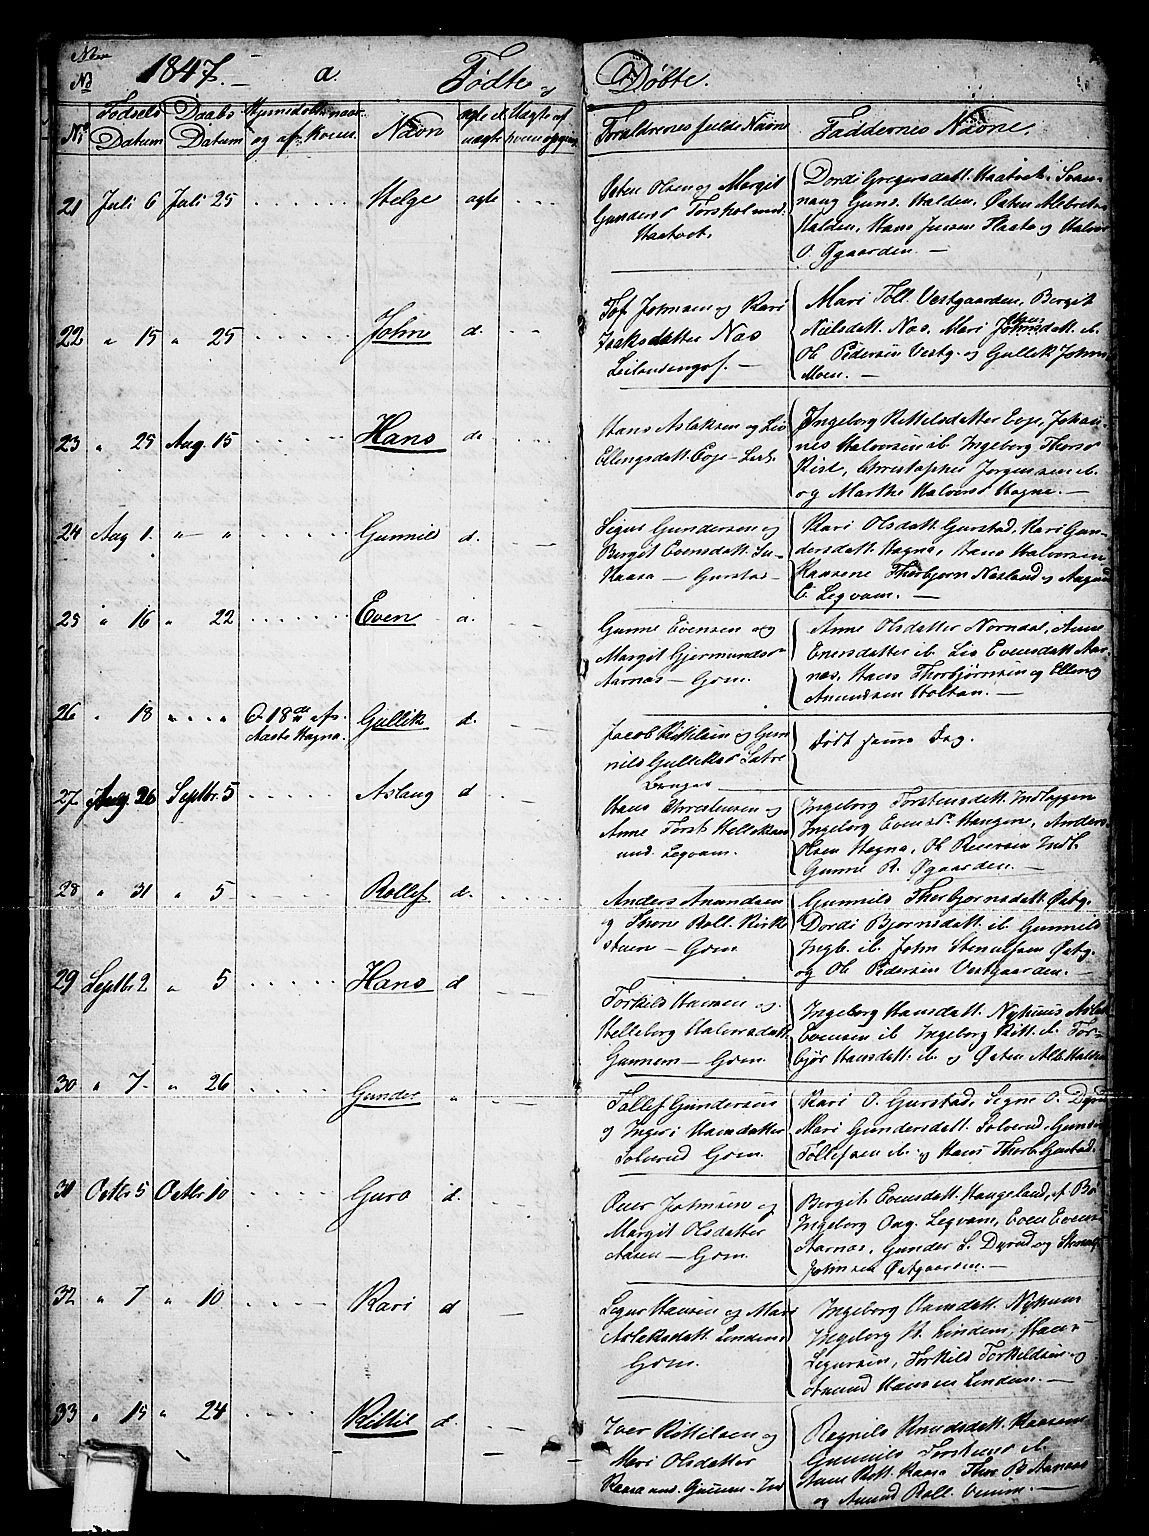 No 1847. a. Fødte og Døbte.
No Fødsels Datum Daabs Datum Hjemmedøbt naar og af hvem Navn ægte el. uægte Uægte af hvem opgiven Forældrenes fulde Navne Faddernes Navne.
21 Juli 6 Juli 25 Helge ægte
Osten Olsen og Margit
Gundersd Torsholmed.
Haatvet.
Dordi Gregersdatt. Haatvet. Svan-
naug Guns. Halden, Østen Albretsen
Halden, Hans Jensen Flaata og Halvor
O. Øgaarden. —
22 " 15 " 25 John d.
Tof Johnsen og Kari
Isaksdatter Næs
Leilændingsf. —
Mari Toll. Vestgaarden, Bergit
Nielsdatt. Næs. Mari Johnsdatt. ib.
Ol. Pedersen Vestg. og Gullik Johns.
Moen. —
23 " 25 Aug. 15 Hans d.
Hans Aslaksen og Liv
Ellingsdatt. Eoje-Leil.
Ingeborg Kittelsdatter Eoje, Johan-
nes Halvorsen ib. Ingeborg Thorsd
Kise, Christopher Jørgensen ib.
og Marthe Halvorsd Hagna. —
24 Aug 1. " " Gunnild d.
Sigur Gundersen og
Birgit Evensdatt. In-
Kaasa — Gurstad —
Kari Olsdatt. Gurstad, Kari Gun-
dersdatt. Hagna, Hans Halvorsen
Kaasene Thorbjørn Næsland og Aagund
E. Legvam. —
25 " 16 " 22 Even d.
Gunne Evensen og
Margit Gjermundsd
Aarnæs — Gbm.
Anne Olsdatter Nordal, Anne
Enersdatter ib. Liv Evensdatt. Aar-
næs, Hans Thorbjørnsen og Elleng
Amundsen Holtan. —
26 " 18 " " " D. 18de af
Aaste Hagna. Gullik d.
Jacob Kittilsen og Gun
nild Gulliksd Sætre
Længer
Død samme Dag.
27 Aug. 26 Septbr. 5 Aslaug d
Hans Christensen og
Anne Torst. Helleksen
und. Legvam.
Ingeborg Torstensdatt. Indlaggen
Ingeborg Evensd. Haugene, Anders
Olsen Hagna, Ol. Reiersen Indl.
Gunne R. Øgaarden. —
28 " 31 " 5 Rollef d.
Anders Amundsen
og Thone Roll. Kirk-
stuen — Gbm.
Gunnild Thorbjørnsdatt. Østg.
Dordi Bjørnsdatt. ib. Gunnild
Ingb. ib. John Stenulfsen Østg.
og Ol. Pedersen Vestgaarden. —
29 Septbr 2 " 5 Hans d
Torkild Hansen og
Helleborg Halvorsdatt.
Gunnem — Gbm.
Ingeborg Hansdatt. Nyhuus Aslak
Evensen ib. Ingeborg Kitt. ib. Tor-
bjør Hansdatt. ib. og Østen Alb. Halden
30 " 7 " 26 Gunder "
Tollef Gundersen
og Ingeri Hansdatter
Solverud Gbm.
Kari O. Gurstad, Signe O. Dyrud
Mari Gundersdatt. Solverud, Gunder
Tollefsen ib. og Hans Thorb. Gurstad.
31 Octbr 5 Octbr 10 Guro d.
Peer Johnsen og
Margit Olsdatter
Aasen — Gbm.
Bergit Evensdatt. Haugeland, af Bø
Ingeborg Aag. Legvam, Even Evens.
Aarnæs, Gunder L. Dyrud og Stenulf
Johnsen Østgaarden. —
32 " 7 " 10 Kari d
Sigur Hansen og Mari
Aslaksdatt. Lindem
Gbm.
Ingeborg Hansdatt. Nyhuus
Ingeborg H. Lindem, Hans
Sigursen, Torkild Torkildsen og
Amund Hansen Lindem. —
33 " 15 " 24 Kittil d.
Iver Kittilsen og
Mari Olsdatter
Kaasa und. Gunnem-Ind
Ragnild Knudsdatt. Kaasene
Gunnild Torstensd ib.
Hans Kitt. Kaasa Thor B. Aarnæs
og Amund Roll. Vemm. —